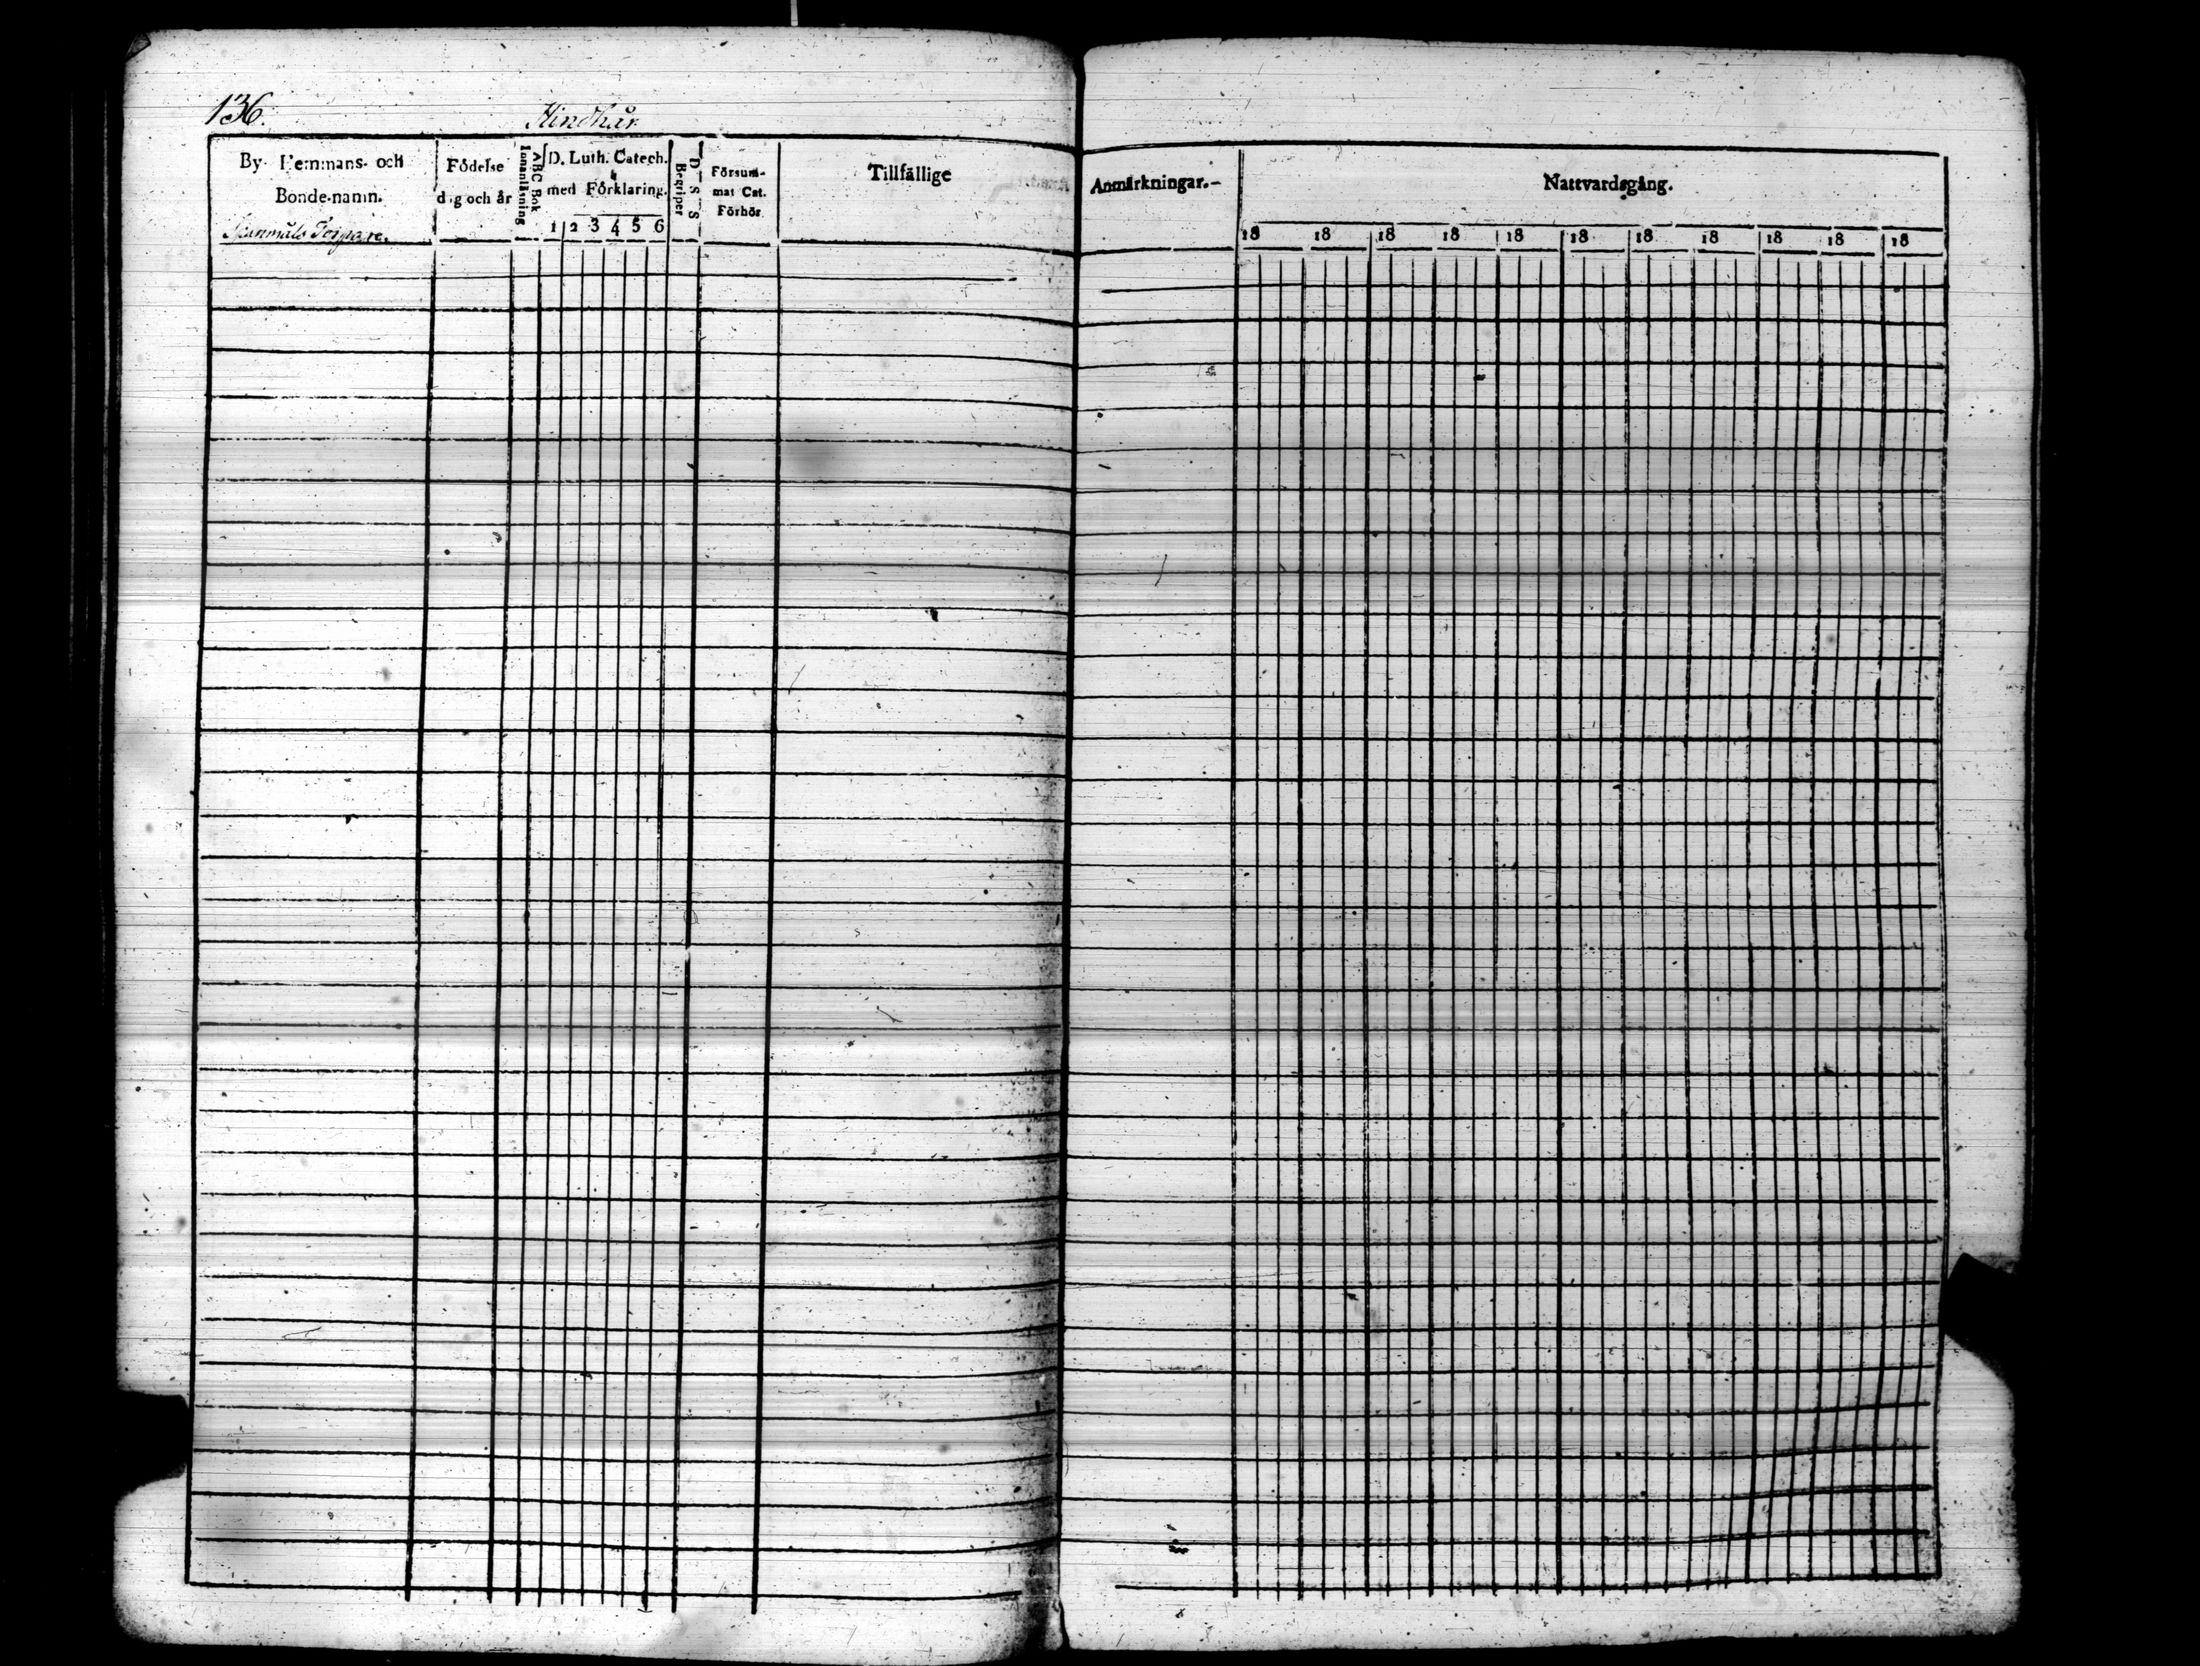 136.
Hindhår
By- Hemmans- och
Bonde-namn.
Torpare.
Födelse
dag och år
Innanläsning
ABC Bok
D. Luth. Catech.
med Förklaring.
1 2 3 4 5 6
Begriper
D S S
Försum-
mat Cat.
Förhör
Tillfällige
Anmärkningar.-
Nattvardsgång.
18 18 18 18 18 18 18 18 18 18 18